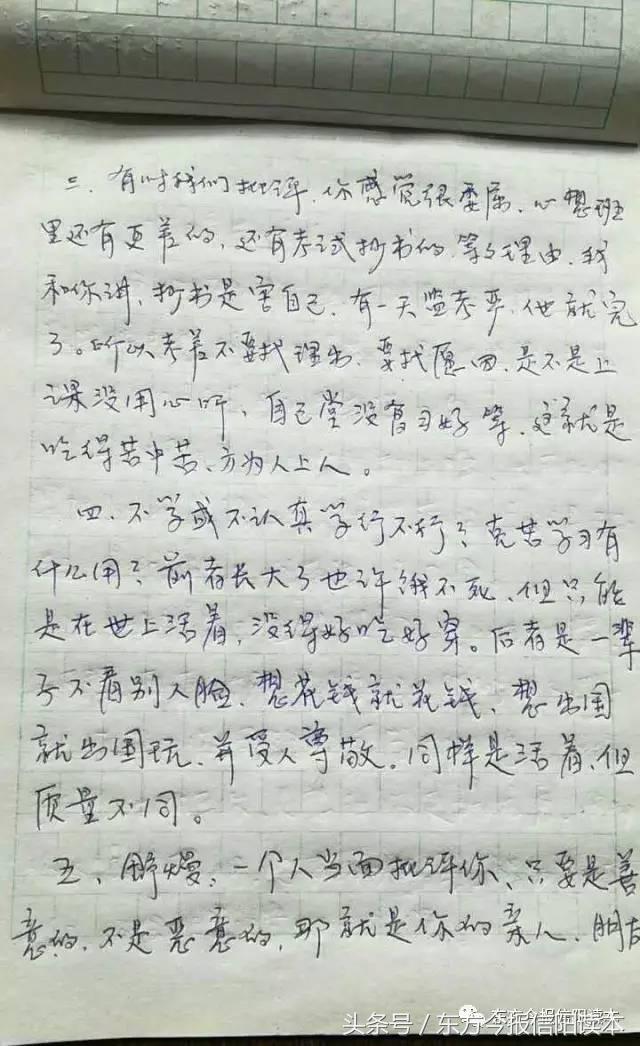 三、有时我们批评,你感觉很委屈、心想班
里还有更差的,还有考试抄书的,等等理由,我
和你讲,抄书是害自己,有一天监考严,他就完
了。所以考差不要找理由,要找原因,是不是上
课没用心听、自己堂没复习好等,这就是
吃得苦中苦、方为人上人。
四、不学或不认真学行不行?克苦学习有
什么用?前者长大了也许饿不死、但只能
是在世上活着,没得好吃好穿。后者是一辈
子不看别人脸、想花钱就花钱、想出国
就出国玩、并受人尊敬。同样是活着,但
质量不同。
五、舒嫚,一个人当面批评你、只要是善
意的,不是恶意的,那就是你的亲人、朋友
东方今报信阳读本
头条号/东方今报信阳读本